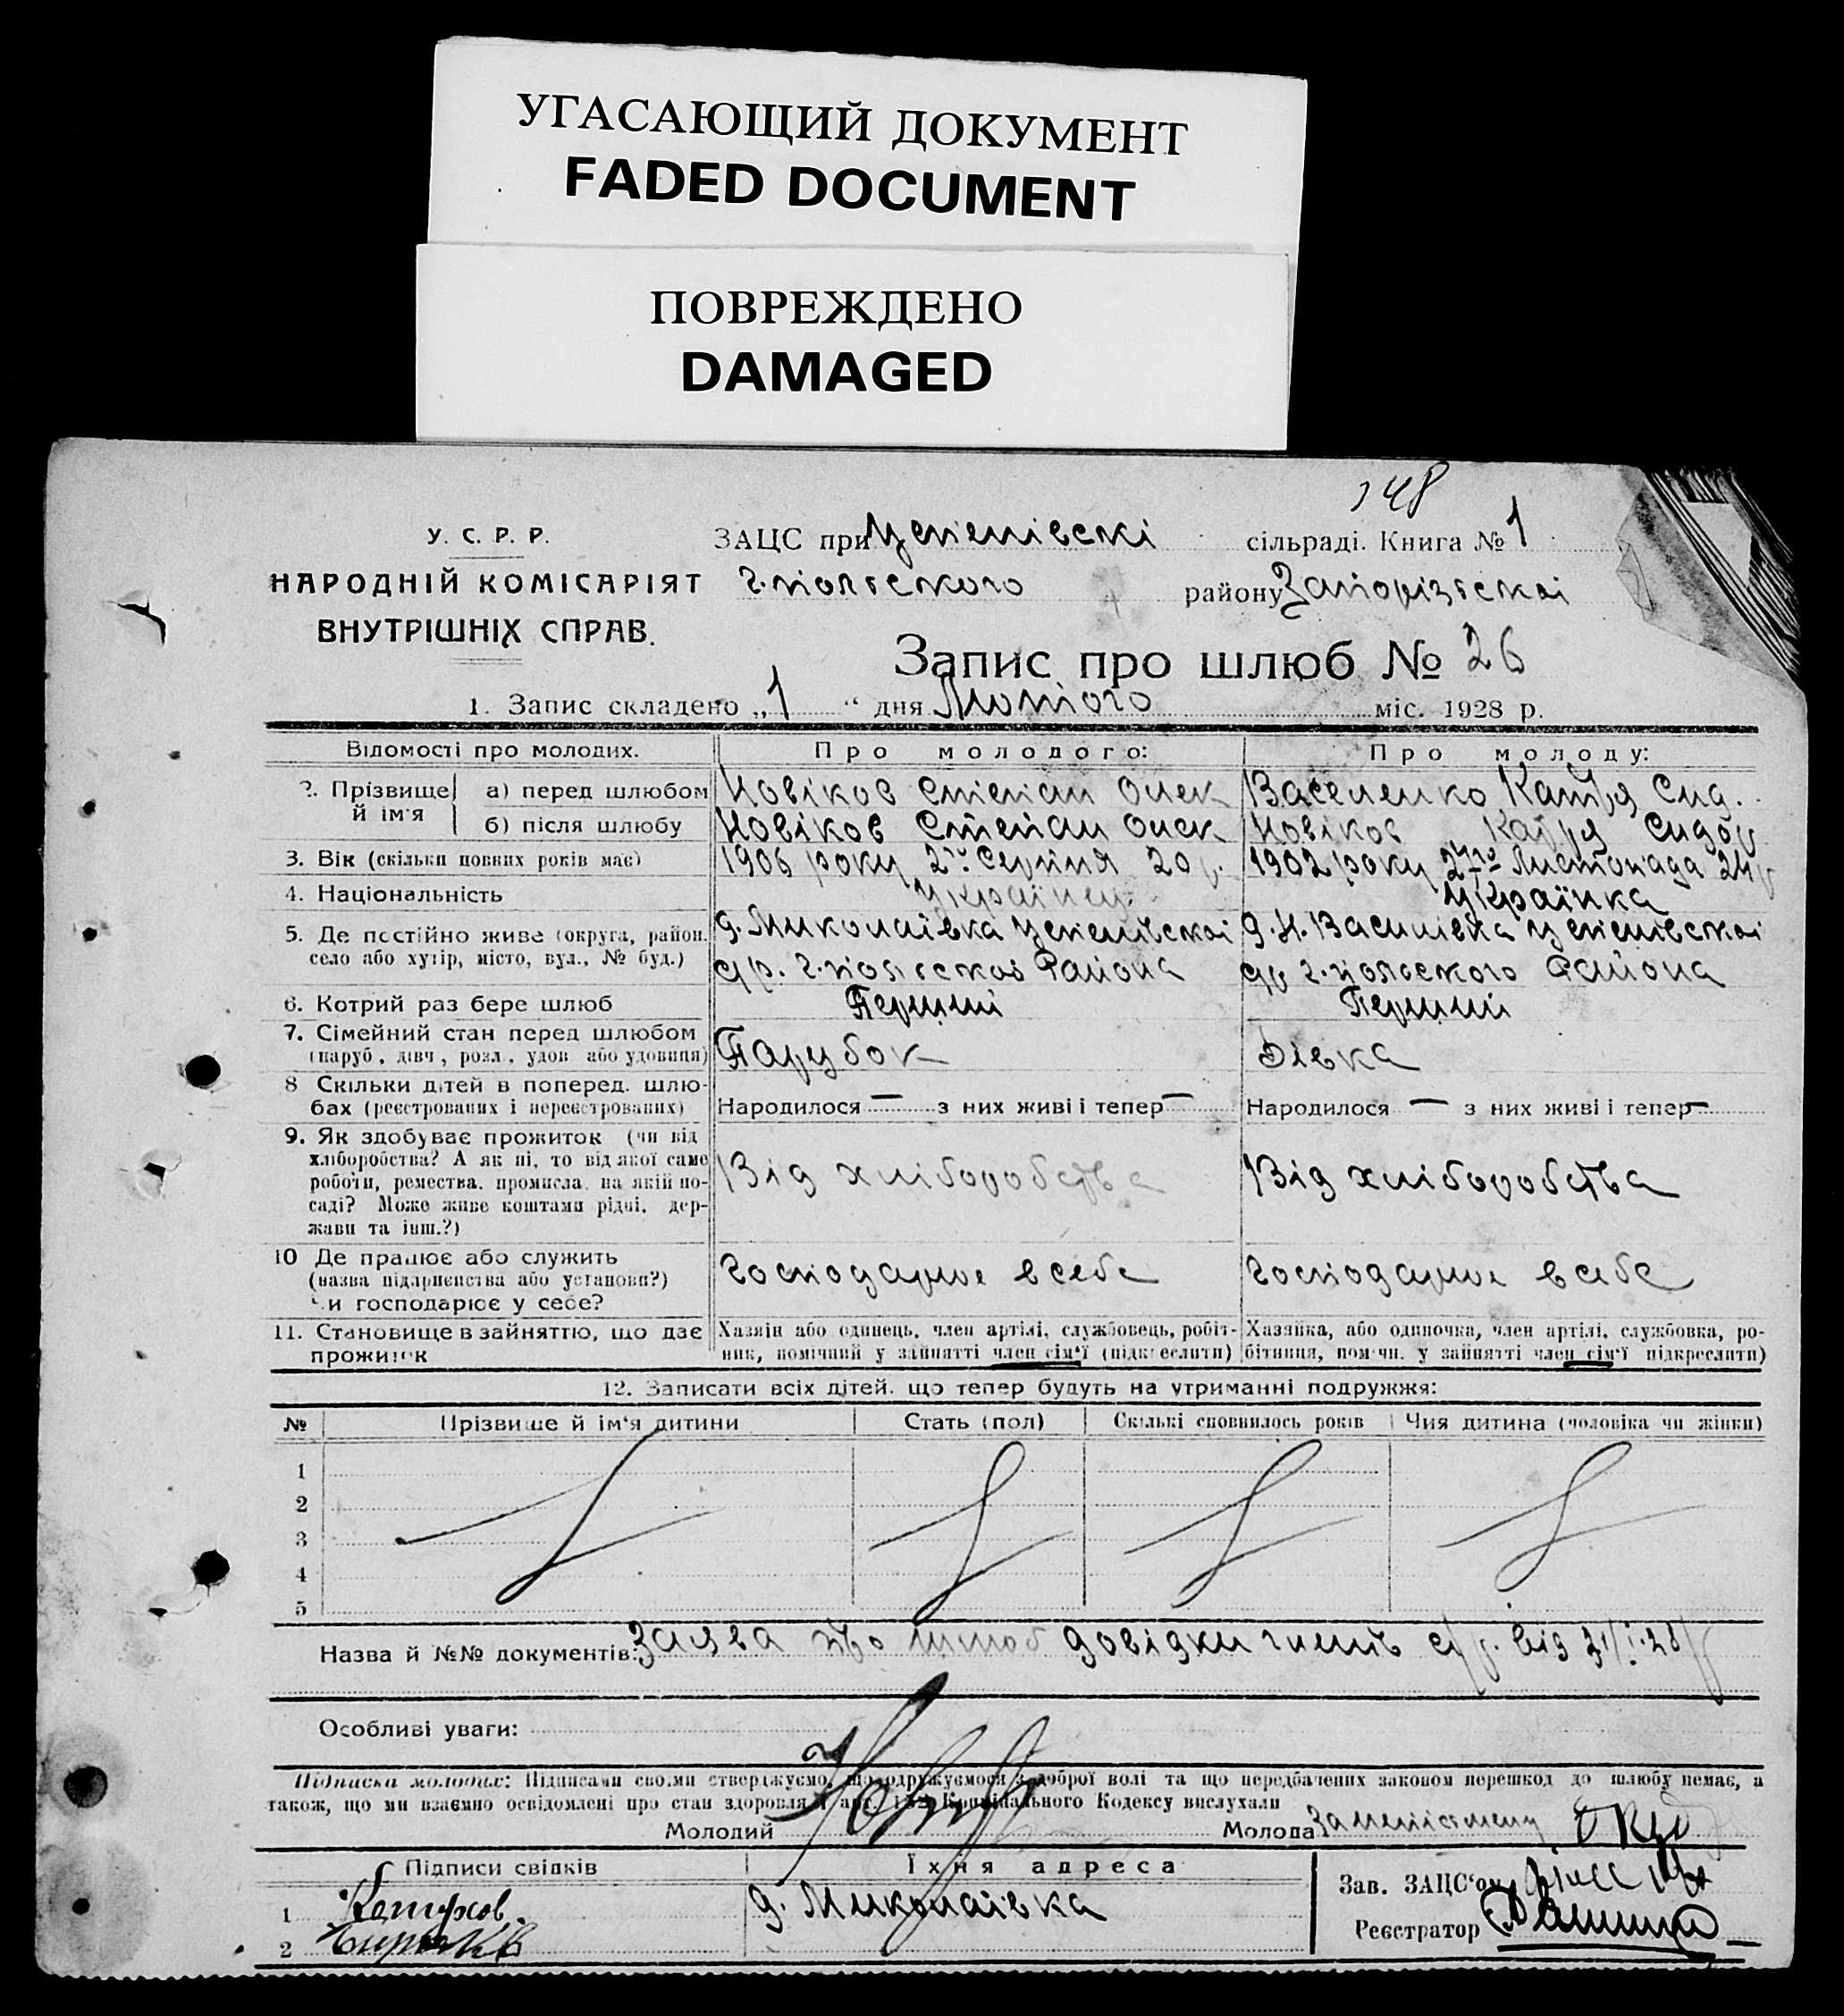 УГАСАЮЩИЙ ДОКУМЕНТ
FADED DOCUMENT
ПОВРЕЖДЕНО
DAMAGED
148
У. С. Р. Р.
НАРОДНІЙ КОМІСАРІЯТ
ВНУТРІШНІХ СПРАВ.
ЗАЦС при сільраді. Книга № 1
Г.польского району Запорізької
Запис про шлюб № 26
1. Запис складено „1“ дня Лютого міс. 1928 р.
Відомості про молодих.
Про молодого:
Про молоду:
2. Прізвище й ім'я
а) перед шлюбом
Новіков Степан Олек
Василенко Катря Сид.
б) після шлюбу
Новіков Степан Олек
Новіков Катря Сидор
3. Вік (скільки повних років має)
1906 року 2го Серпня 20 р.
1902 року 24го Листопада 24 р
4. Національність
Українец
Українка
5. Де постійно живе (округа, район.
село або хутір, місто, вул., № буд.)
д. Миколаівка
с/р. Г.польского Района
д. Н. Василівка
с/р Г.польского Района
6. Котрий раз бере шлюб
Перший
Перший
7. Сімейний стан перед шлюбом
(паруб., дівч., розл., удов. або удовиця)
Парубок
Дівка
8 Скільки дітей в поперед. шлю-
бах (реєстрованих і нереєстрованих)
Народилося — з них живі і тепер —
Народилося — з них живі і тепер —
9. Як здобуває прожиток (чи від
хліборобства? А як ні, то від якої саме
роботи, ремества, промисла, на якій по-
саді? Може живе коштами рідні, дер-
жави та інш.?)
Від хліборобства
Від хліборобства
10 Де працює або служить
(назва підприємства або установи?)
Чи господарює у себе?
Господарює в себе
Господарює в себе
11. Становище в зайняттю, що дає
прожиток
Хазяїн або одинець, член артілі, службовець, робіт-
ник, помічний у зайнятті член сім'ї (підкреслити)
Хазяйка, або одиночка, член артілі, службовка, ро-
бітниця, помічн. у зайнятті член сім'ї підкреслити)
12. Записати всіх дітей, що тепер будуть на утриманні подружжя:
№ Прізвище й ім'я дитини Стать (пол) Скількі сповнилось років Чия дитина (чоловіка чи жінки)
1
2
3
4
5
Назва й №№ документів: Заява про шлюб довідки с/р. від 31/I-28 р
Особливі уваги:
Підписка молодих: Підписами своїми стверджуємо, що одружуємося з доброї волі та що передбачених законом перешкод до шлюбу немає, а
також, що ми взаємно освідомлені про стан здоровля й арт. Кримінального Кодексу вислухали
Молодий
Молода
Підписи свідків
Їхня адреса
1
д. Миколаівка
2
Зав. ЗАЦС'ом
Реєстратор